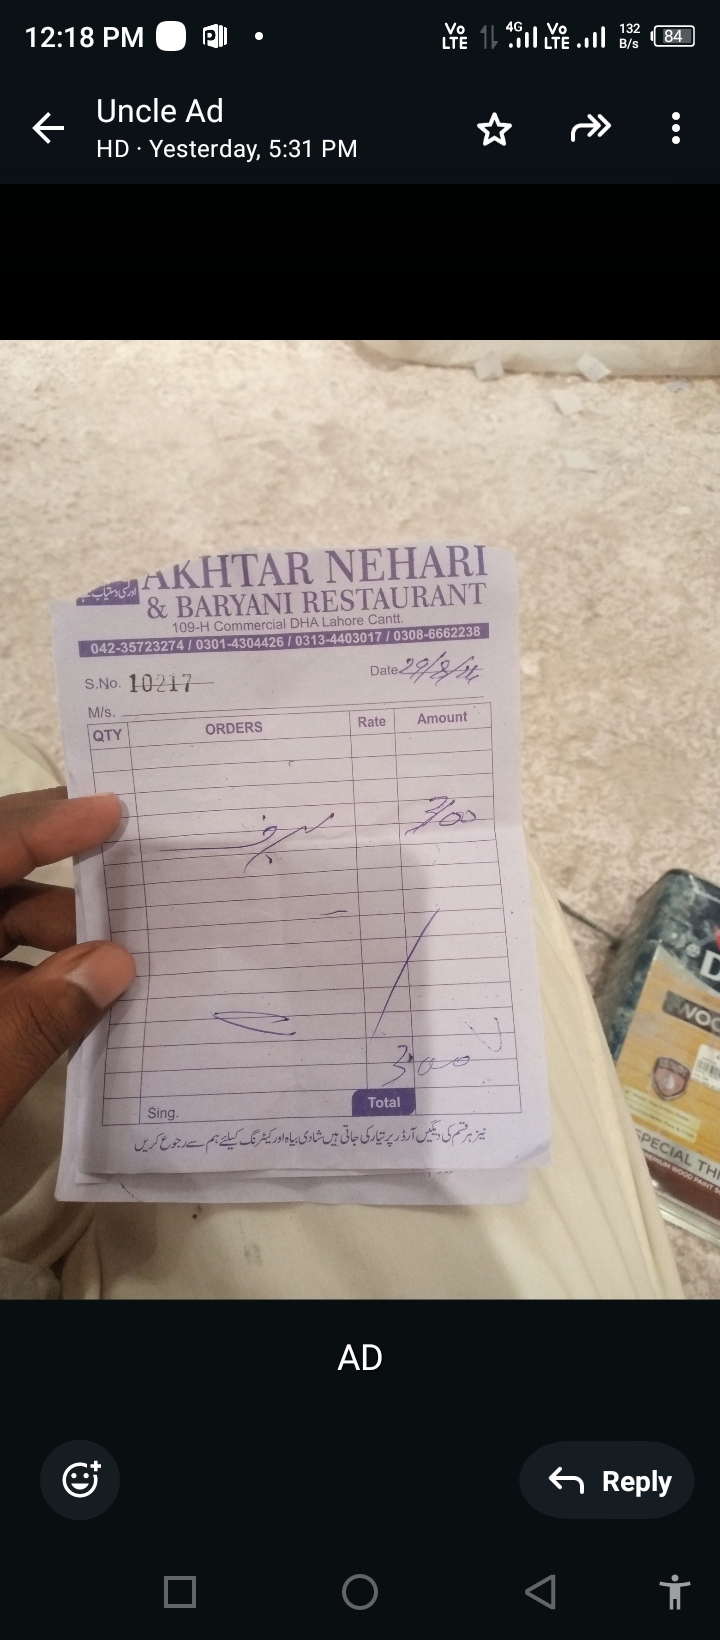 12:18 PM
Vo LTE 4G Vo LTE 132 B/s 84
Uncle Ad
HD · Yesterday, 5:31 PM
AKHTAR NEHARI
& BARYANI RESTAURANT
109-H Commercial DHA Lahore Cantt.
042-35723274 / 0301-4304426 / 0313-4403017 / 0308-6662238
S.No. 10217
Date 29/8/
M/s.
QTY ORDERS Rate Amount
300
300
Sing. Total
نیز ہر قسم کی دیگیں آرڈر پر تیار کی جاتی ہیں شادی بیاہ اور کیٹرنگ کیلئے ہم سے رجوع کریں
SPECIAL THI
AD
Reply